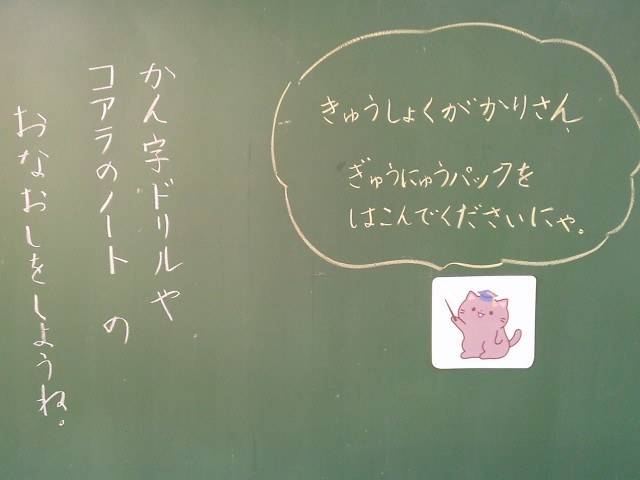 きゅうしょくがかりさん、
ぎゅうにゅうパックを
はこんでくださいにゃ。
かん字ドリルや
コアラのノートの
おなおしをしようね。